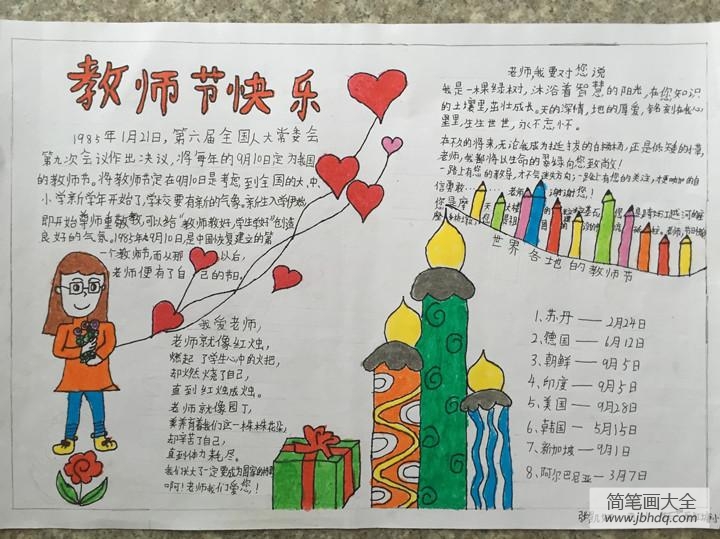 教师节快乐
1985年1月21日,第六届全国人大常委会
第九次会议作出决议,将每年的9月10日定为我国
的教师节。将教师节定在9月10日是考虑到全国的大、中、
小学新学年开始了,学校要有新的气象。新生入学伊始,
即开始尊师重教,可以给“教师教好,学生学好”创造
良好的气氛。1985年9月10日,是中国恢复建立的第
一个教师节,而以那以后,
老师便有了自己的节日。
老师,我要对您说
我是一棵绿树,沐浴着智慧的阳光,在您知识
的土壤里,茁壮成长。天的深情,地的厚爱,铭刻在我心
里,生生世世,永不忘怀。
老师,我都将以生命的翠绿向您致敬!
一路上有您的教导,才不会迷失方向;一路上有您的关注,才更加的自
信勇敢……老师,谢谢您!
世界各地的教师节
1、苏丹——2月24日
2、德国——6月12日
3、朝鲜——9月5日
4、印度——9月5日
5、美国——9月28日
6、韩国——5月15日
7、新加坡——9月1日
8、阿尔巴尼亚——3月7日
我爱老师,
老师就像红烛,
燃起了学生心中的火把,
却燃烧了自己,
直到红烛成烛。
老师就像园丁,
却辛苦了自己,
直到体力耗尽。
啊!老师我们爱您!
简笔画大全
www.jbhdq.com